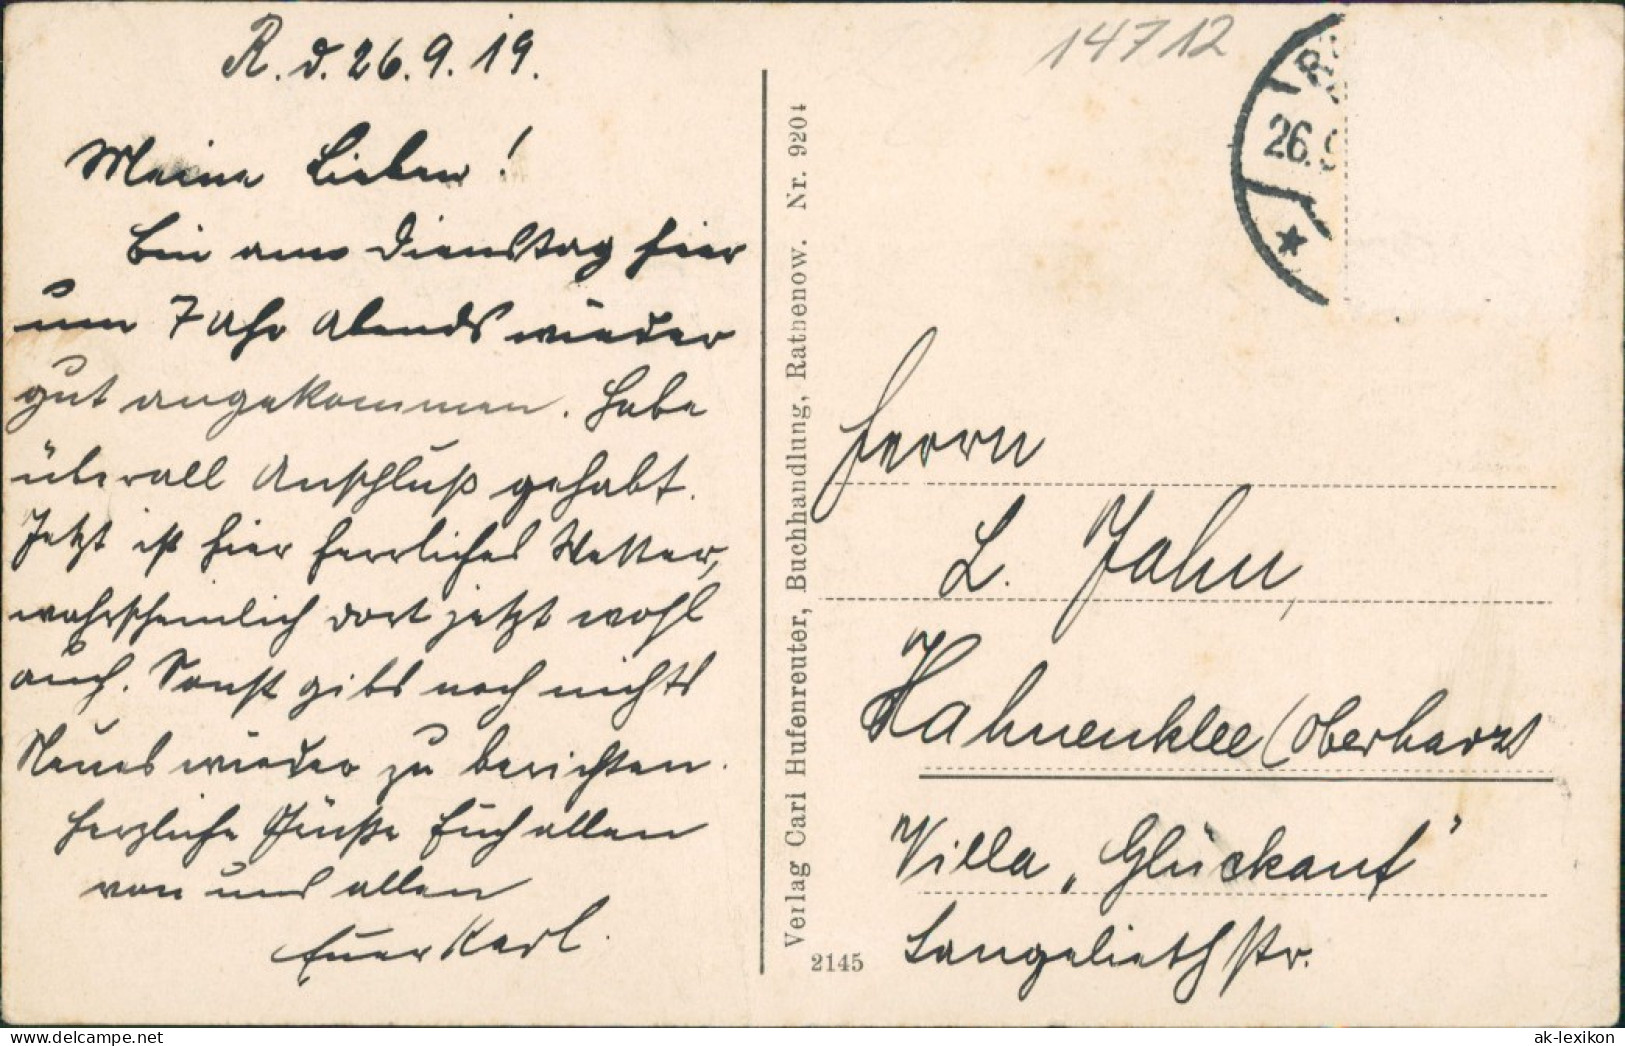 R. d. 26.9.19.
Meine Lieben!
Bin am Dienstag hier
um 7 Uhr Abends wieder
gut angekommen. Habe
überall Anschluß gehabt.
Jetzt ist hier herrliches Wetter,
wahrscheinlich dort jetzt wohl
auch. Sonst gibs noch nichts
Neues wieder zu berichten.
Herzliche Grüße Euch allen
von uns allen
Euer Karl.
Verlag Carl Hufenreuter, Buchhandlung, Rathenow. Nr. 9204
2145
14712
26.9
Herrn
L. Jahn,
Hahnenklee (Oberharz
Villa „Glückauf"
Langeliethstr.
ak-lexikon